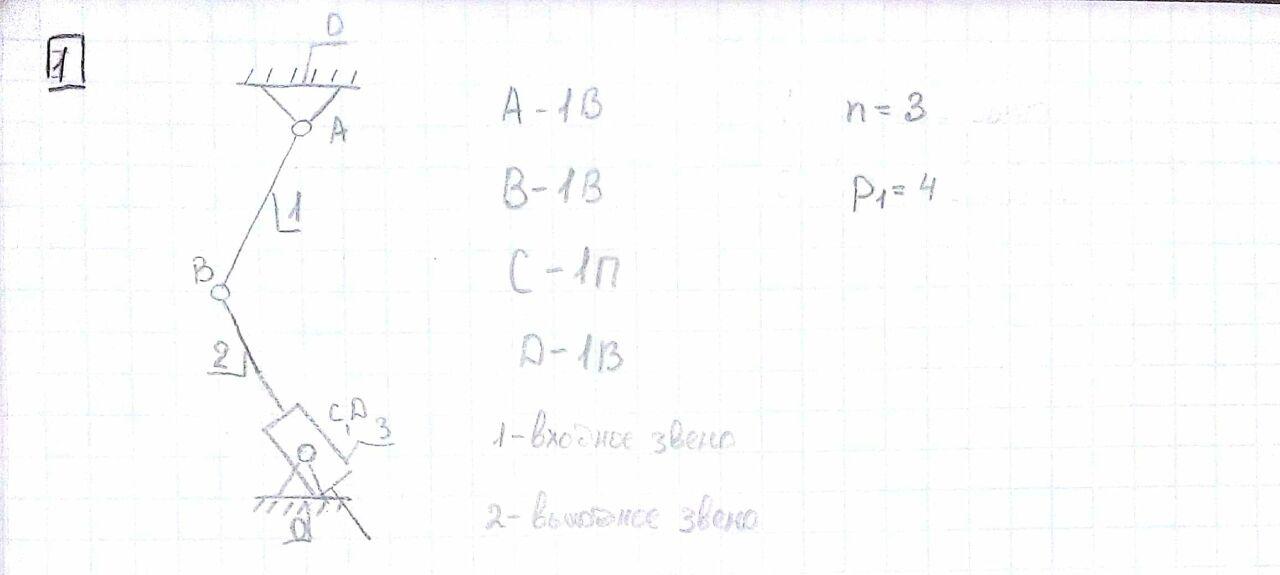 1
0
A
1
B
2
C,D 3
0
A-1В
B-1В
C-1П
D-1В
1-входное звено
2-выходное звено
n=3
p₁=4